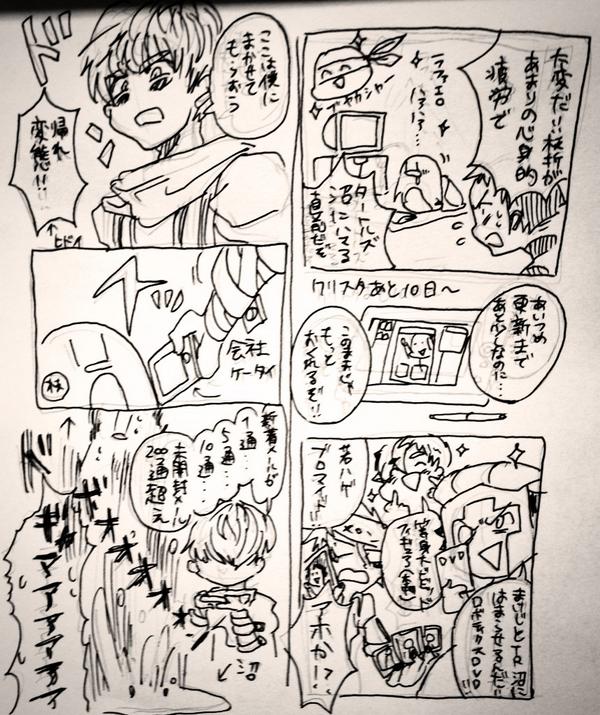 大変だ!!枝折が
あまりの心身的
疲労で
ラファエロ
ハァハァ…
タートルズ
沼にハマる
直前だぞ
クリスタあと10日〜
あいつめ
更新まで
あと少しなのに…
このままじゃ
もっと
おくれるぞ!!
若ハゲ
ブロマイド!!
等身大
DVD
まけじとTR沼に
はまらせるんだ!!
ロボティクスDVD!!
アホか!?
ここは僕に
まかせて
もらおう
ド
帰れ
変態!!
↑ヒドイ
会社
ケータイ
株
新着メールが
1通…
5通…
10通…
未開封メール
200通超え
ド
ギャアアアアアア
←沼